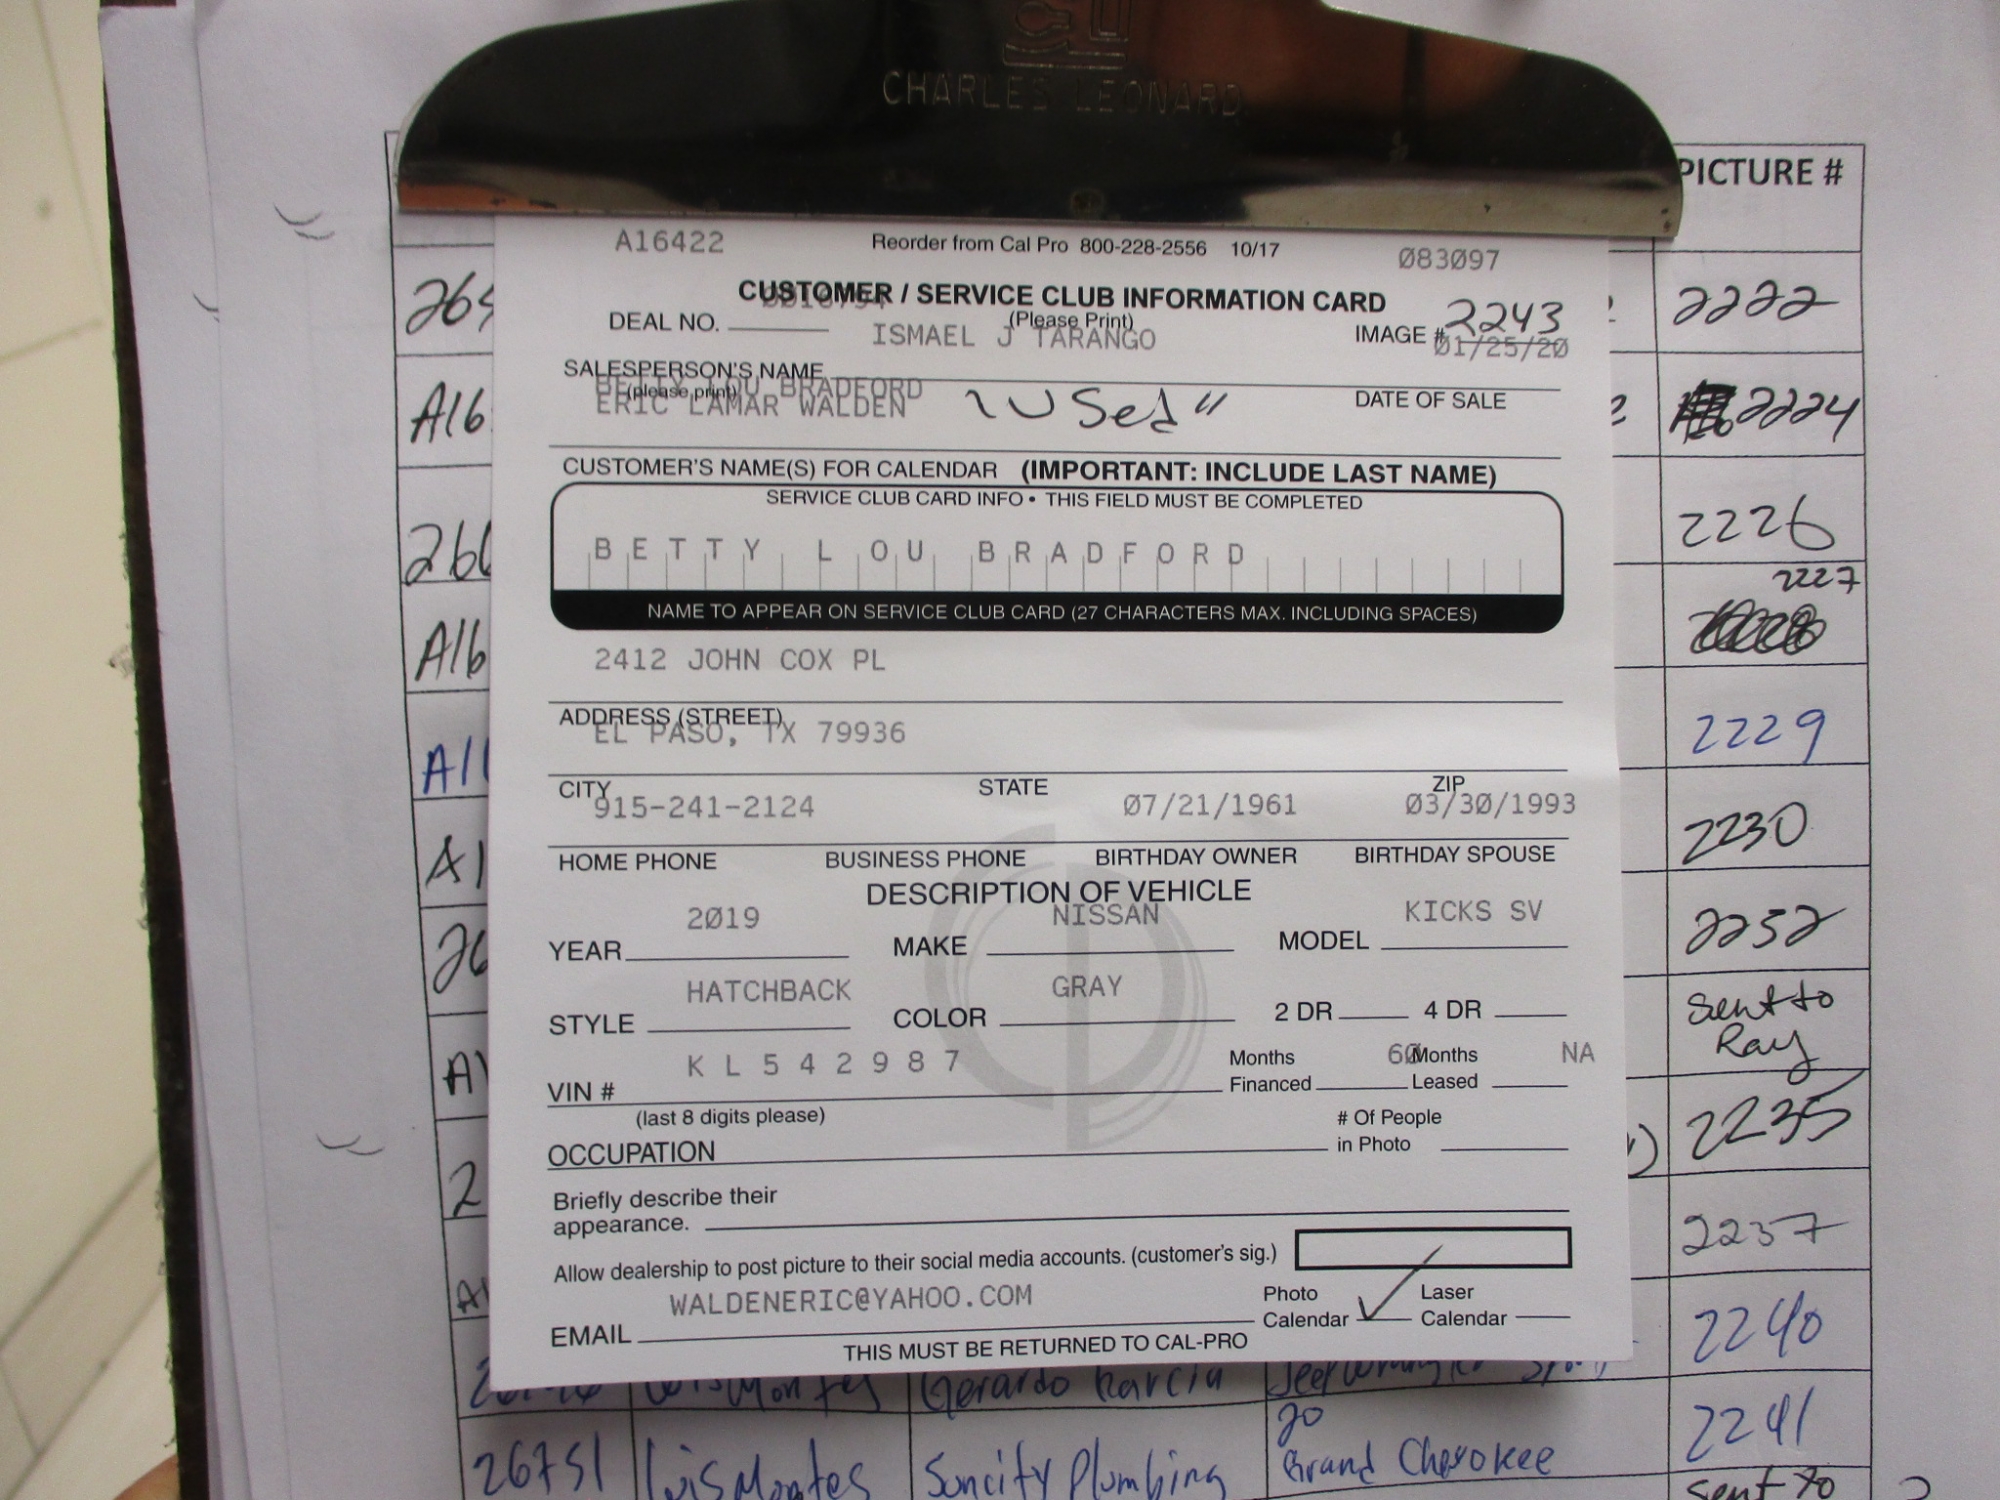 CHARLES LEONARD
PICTURE #
A16422 Reorder from Cal Pro 800-228-2556 10/17 083097
CUSTOMER / SERVICE CLUB INFORMATION CARD
(Please Print)
DEAL NO. ISMAEL J TARANGO IMAGE # 2243
01/25/20
SALESPERSON'S NAME
(please print)
BETTY LOU BRADFORD
ERIC LAMAR WALDEN "Used" DATE OF SALE
CUSTOMER'S NAME(S) FOR CALENDAR (IMPORTANT: INCLUDE LAST NAME)
SERVICE CLUB CARD INFO • THIS FIELD MUST BE COMPLETED
BETTY LOU BRADFORD
NAME TO APPEAR ON SERVICE CLUB CARD (27 CHARACTERS MAX. INCLUDING SPACES)
2412 JOHN COX PL
ADDRESS (STREET)
EL PASO, TX 79936
CITY STATE ZIP
915-241-2124 07/21/1961 03/30/1993
HOME PHONE BUSINESS PHONE BIRTHDAY OWNER BIRTHDAY SPOUSE
DESCRIPTION OF VEHICLE
YEAR 2019 MAKE NISSAN MODEL KICKS SV
STYLE HATCHBACK COLOR GRAY 2 DR 4 DR
VIN # K L 5 4 2 9 8 7 Months Financed 60 Months Leased NA
(last 8 digits please)
OCCUPATION # Of People in Photo
Briefly describe their
appearance.
Allow dealership to post picture to their social media accounts. (customer's sig.)
EMAIL WALDENERIC@YAHOO.COM Photo Calendar ✓ Laser Calendar
THIS MUST BE RETURNED TO CAL-PRO
2222
A16 2224
2226
2227
A16
2229
2230
2252
Sent to
Ray
2235
2237
2240
Luis Montes Gerardo Garcia Jeep Wrangler
26751 Luis Montes Suncity Plumbing 20 Grand Cherokee 2241
Sent to